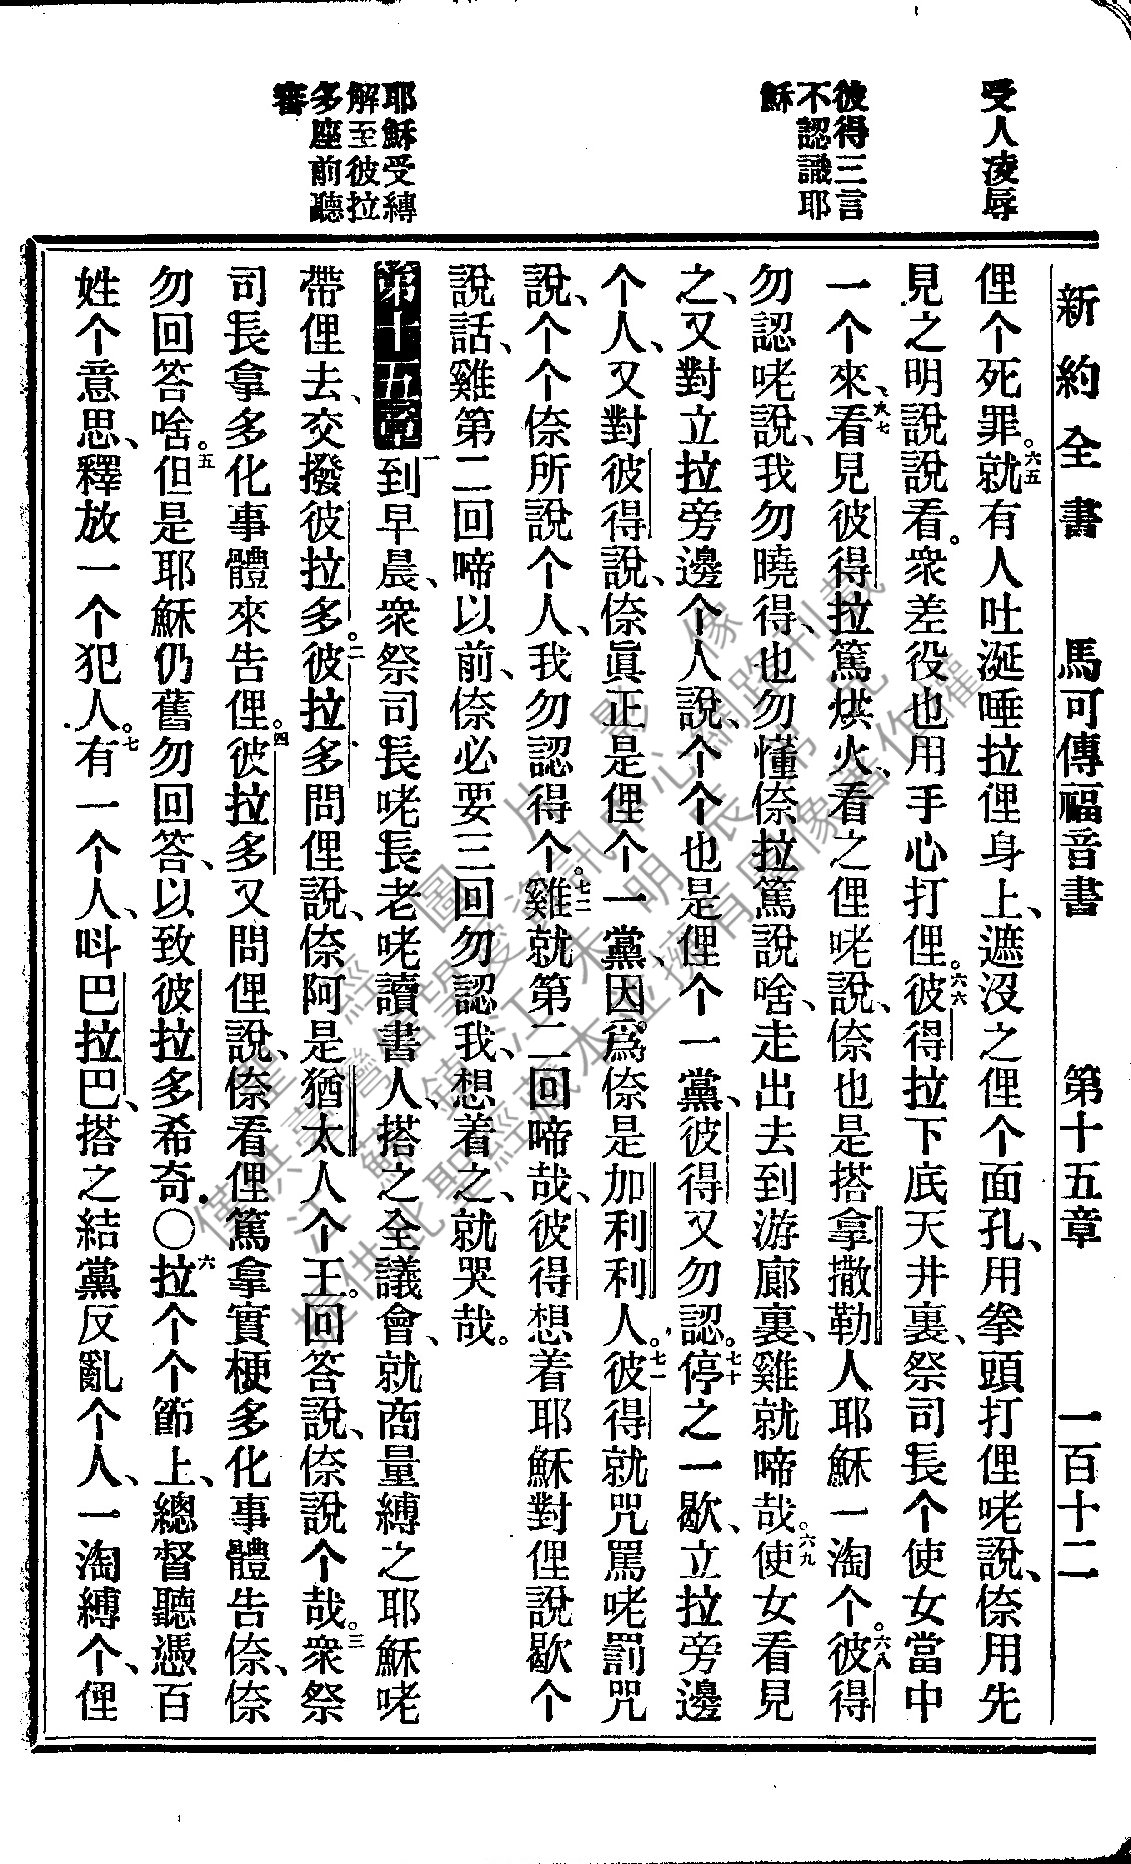 受人凌辱
彼得三言
不認識耶
穌
耶穌受縛
解至彼拉
多座前聽
審
新約全書 馬可傳福音書 第十五章 一百十二
俚个死罪。六五就有人吐涎唾拉俚身上、遮沒之俚个面孔、用拳頭打俚咾說、倷用先
見之明說說看。衆差役也用手心打俚。六六彼得拉下底天井裏、祭司長个使女當中
一个來、六七看見彼得拉篤烘火、看之俚咾說、倷也是搭拿撒勒人耶穌一淘个。六八彼得
勿認咾說、我勿曉得、也勿懂倷拉篤說啥、走出去到游廊裏、雞就啼哉。六九使女看見
之、又對立拉旁邊个人說、个个也是俚个一黨、彼得又勿認。七十停之一歇、立拉旁邊
个人、又對彼得說、倷眞正是俚个一黨、因爲倷是加利利人。七一彼得就咒罵咾罰咒
說、个个倷所說个人、我勿認得个。七二雞就第二回啼哉、彼得想着耶穌對俚說歇个
說話、雞第二回啼以前、倷必要三回勿認我、想着之、就哭哉。
第十五章 一到早晨、衆祭司長咾長老咾讀書人、搭之全議會、就商量縛之耶穌咾
帶俚去、交撥彼拉多。二彼拉多問俚說、倷阿是猶太人个王。回答說、倷說个哉。三衆祭
司長拿多化事體來告俚。四彼拉多又問俚說、倷看俚篤拿實梗多化事體告倷、倷
勿回答啥。五但是耶穌仍舊勿回答、以致彼拉多希奇。〇六拉个个節上、總督聽憑百
姓个意思、釋放一个犯人。七有一个人、呌巴拉巴、搭之結黨反亂个人、一淘縛个、俚
僅供聖經圖片影像
江灣信望愛資訊中心網路刊載
蘇鎮江木明長弟兄
提供此聖經藏本並擁有圖像著作權